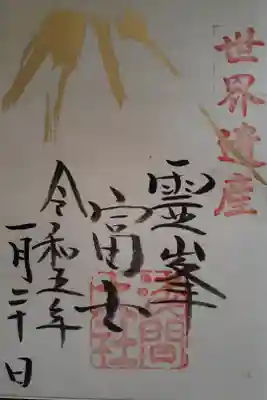 世界遺産
霊峯
富士
浅間
大社
令和五年
一月二十日